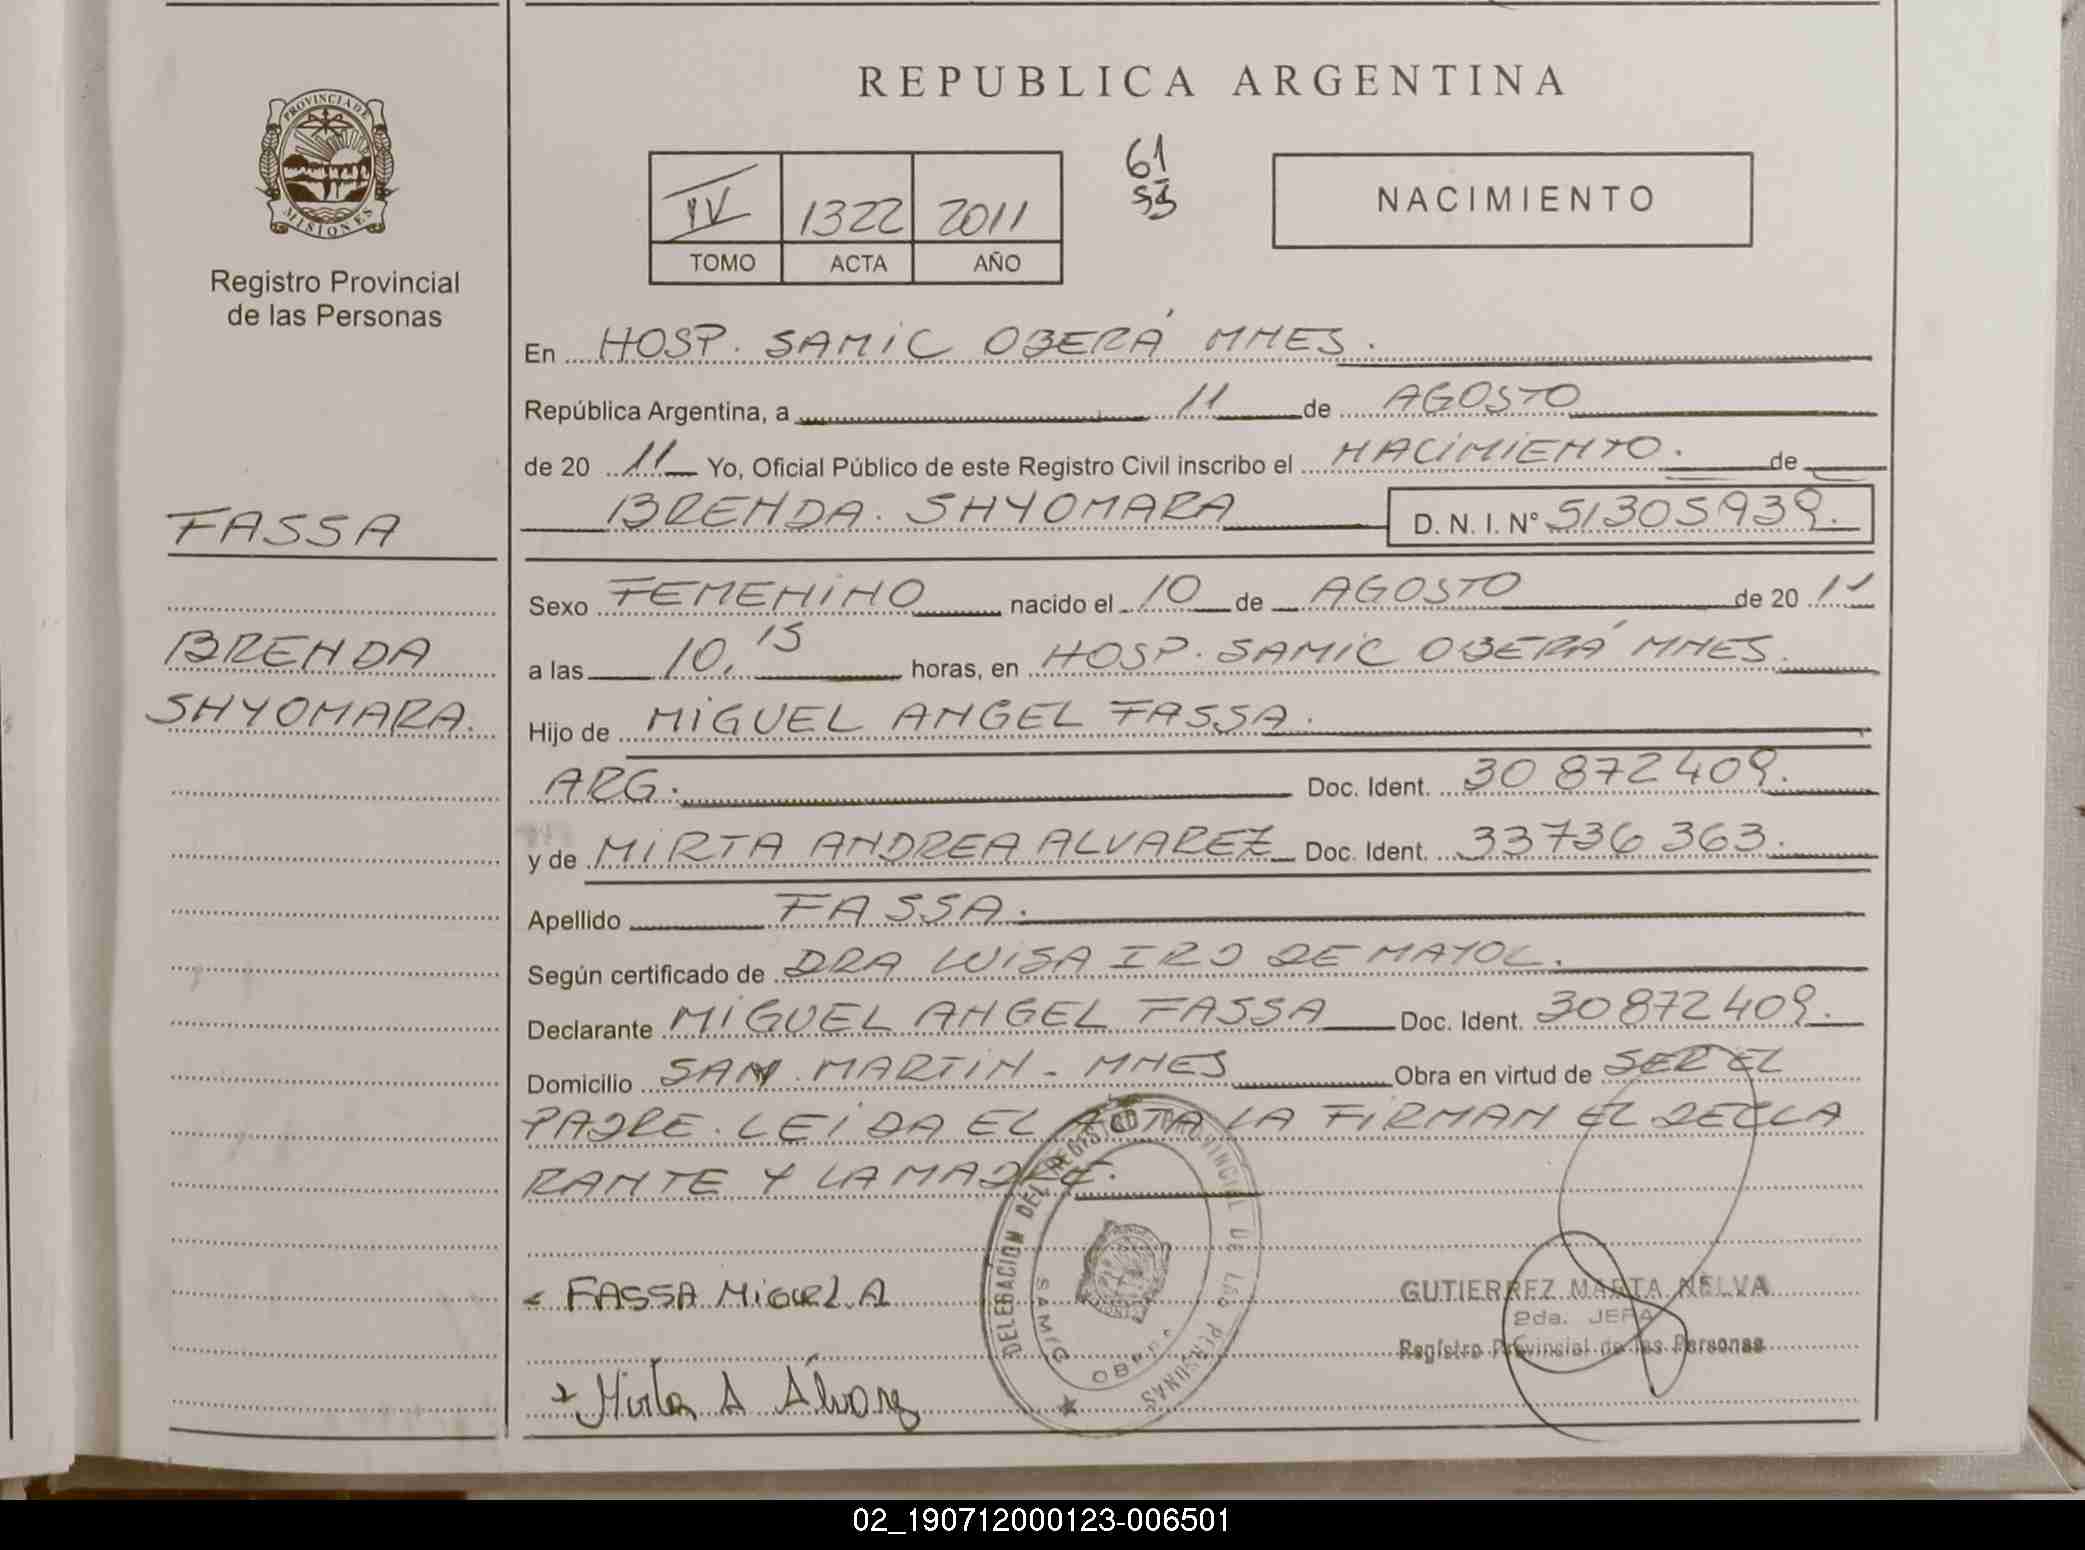 REPUBLICA ARGENTINA
PROVINCIA DE
MISIONES
Registro Provincial
de las Personas
IV 1322 2011
TOMO ACTA AÑO
61
NACIMIENTO
En HOSP. SAMIC OBERÁ MNES.
República Argentina, a 11 de AGOSTO
de 20 11 Yo, Oficial Público de este Registro Civil inscribo el NACIMIENTO. de
BRENDA. SHYOMARA D. N. I. N° 51305939.
FASSA
BRENDA
SHYOMARA.
Sexo FEMENINO nacido el 10 de AGOSTO de 20 11
a las 10,15 horas, en HOSP. SAMIC OBERÁ MNES.
Hijo de MIGUEL ANGEL FASSA.
ARG. Doc. Ident. 30 872 409.
y de MIRTA ANDREA ALVAREZ Doc. Ident. 33736 363.
Apellido FASSA.
Según certificado de DRA LUISA IRO DE MAYOL.
Declarante MIGUEL ANGEL FASSA Doc. Ident. 30872409.
Domicilio SAN MARTIN - MNES Obra en virtud de SER EL
PADRE. LEIDA EL ACTA LA FIRMAN EL DECLA
RANTE Y LA MADRE.
DELEGACION DEL REGISTRO PROVINCIAL DE LAS PERSONAS
SAMIC OBERA
FASSA MIGUEL A
Mirta A Alvarez
GUTIERREZ MARTA NELVA
2da. JEFA
Registro Provincial de las Personas
02_190712000123-006501